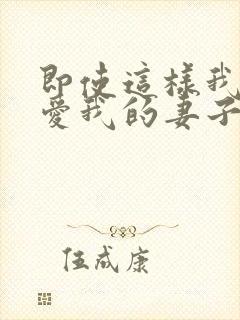 即使這樣我
愛我的妻子
伍成康